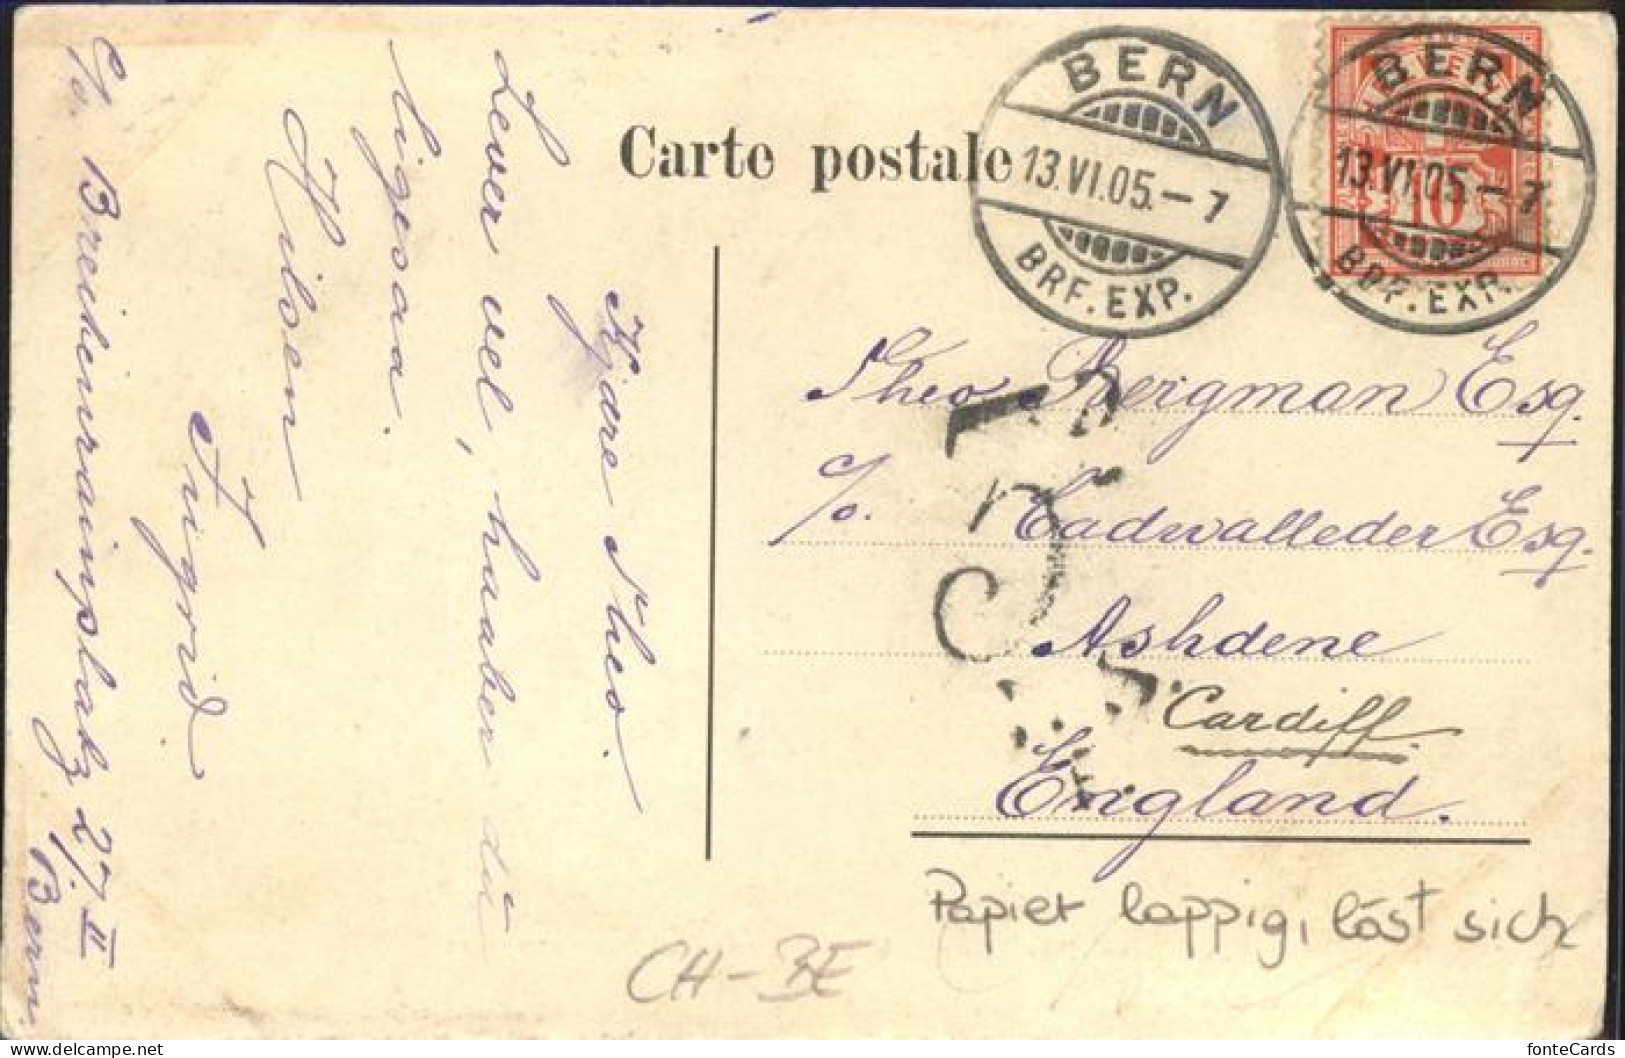 Carte postale
BERN
13.VI.05.-7
BRF. EXP.
BERN
13.VI.05.-7
BRF. EXP.
10
Theo Bergman Esq.
c/o. Cadwalleder Esq.
Ashdene
Cardiff.
England.
Kjære Theo.
Lever vel, haaber du
ligesaa.
Hilsen
Ingrid
c/o. Breichenrainplatz 27 II
Bern
Papier lappig, löst sich
CH-BE
fonteCards